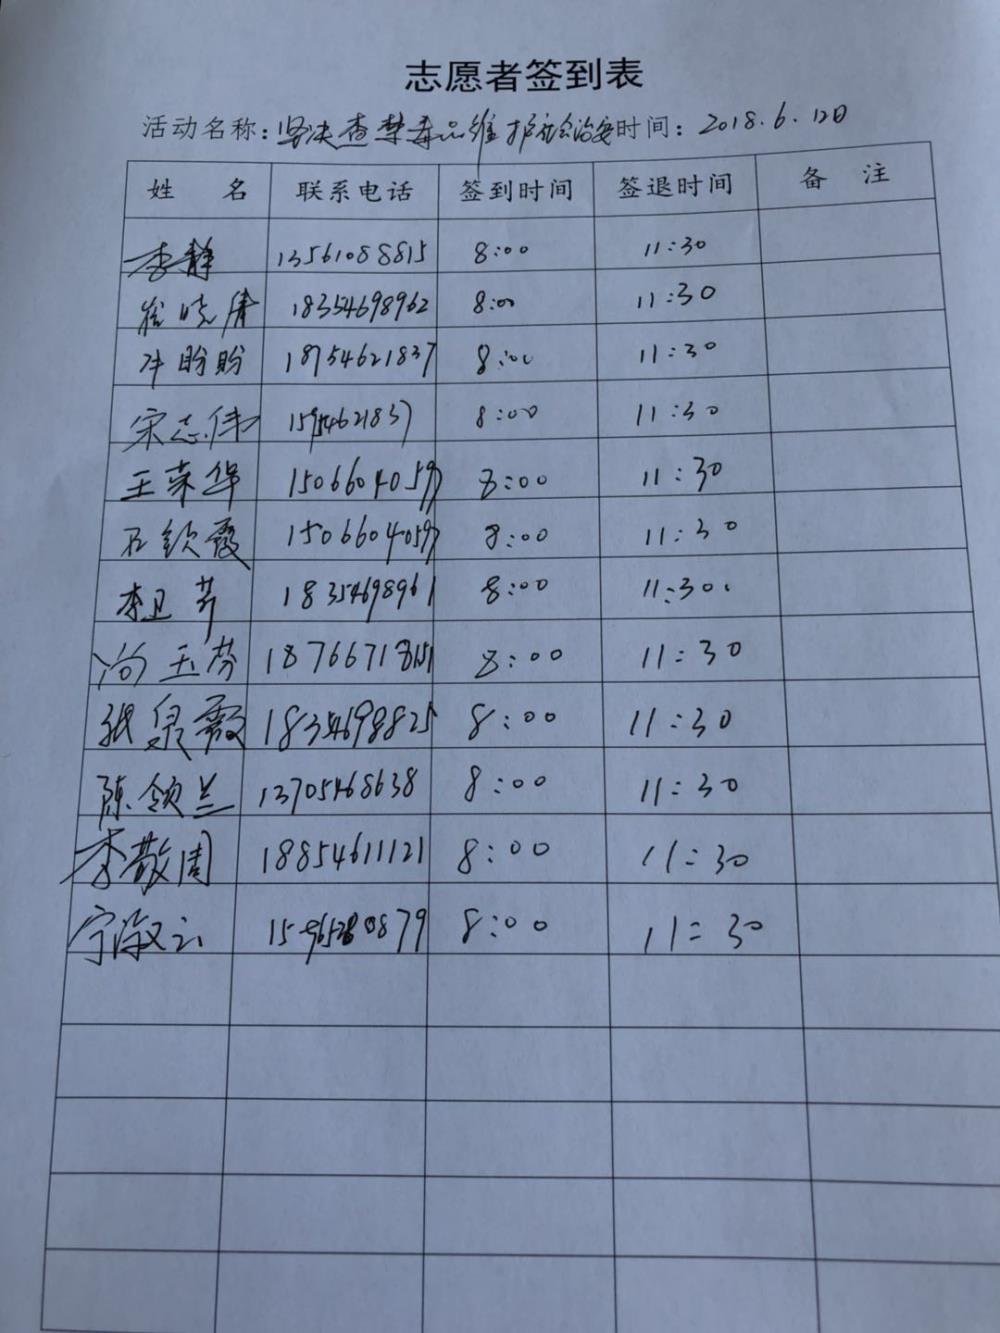 志愿者签到表
活动名称：坚决查禁毒品维护社会治安 时间：2018.6.12日
姓 名 联系电话 签到时间 签退时间 备 注
李静 13561088815 8:00 11:30
徐晓倩 18354698962 8:00 11:30
牛盼盼 18754621837 8:00 11:30
宋志伟 8:00 11:30
王荣华 15066040597 8:00 11:30
石钦霞 15066040597 8:00 11:30
李卫芳 18354698961 8:00 11:30
尚玉芬 8:00 11:30
张泉霞 18354698825 8:00 11:30
陈领兰 13705468638 8:00 11:30
李敬周 18854611121 8:00 11:30
宁海云 8:00 11:30